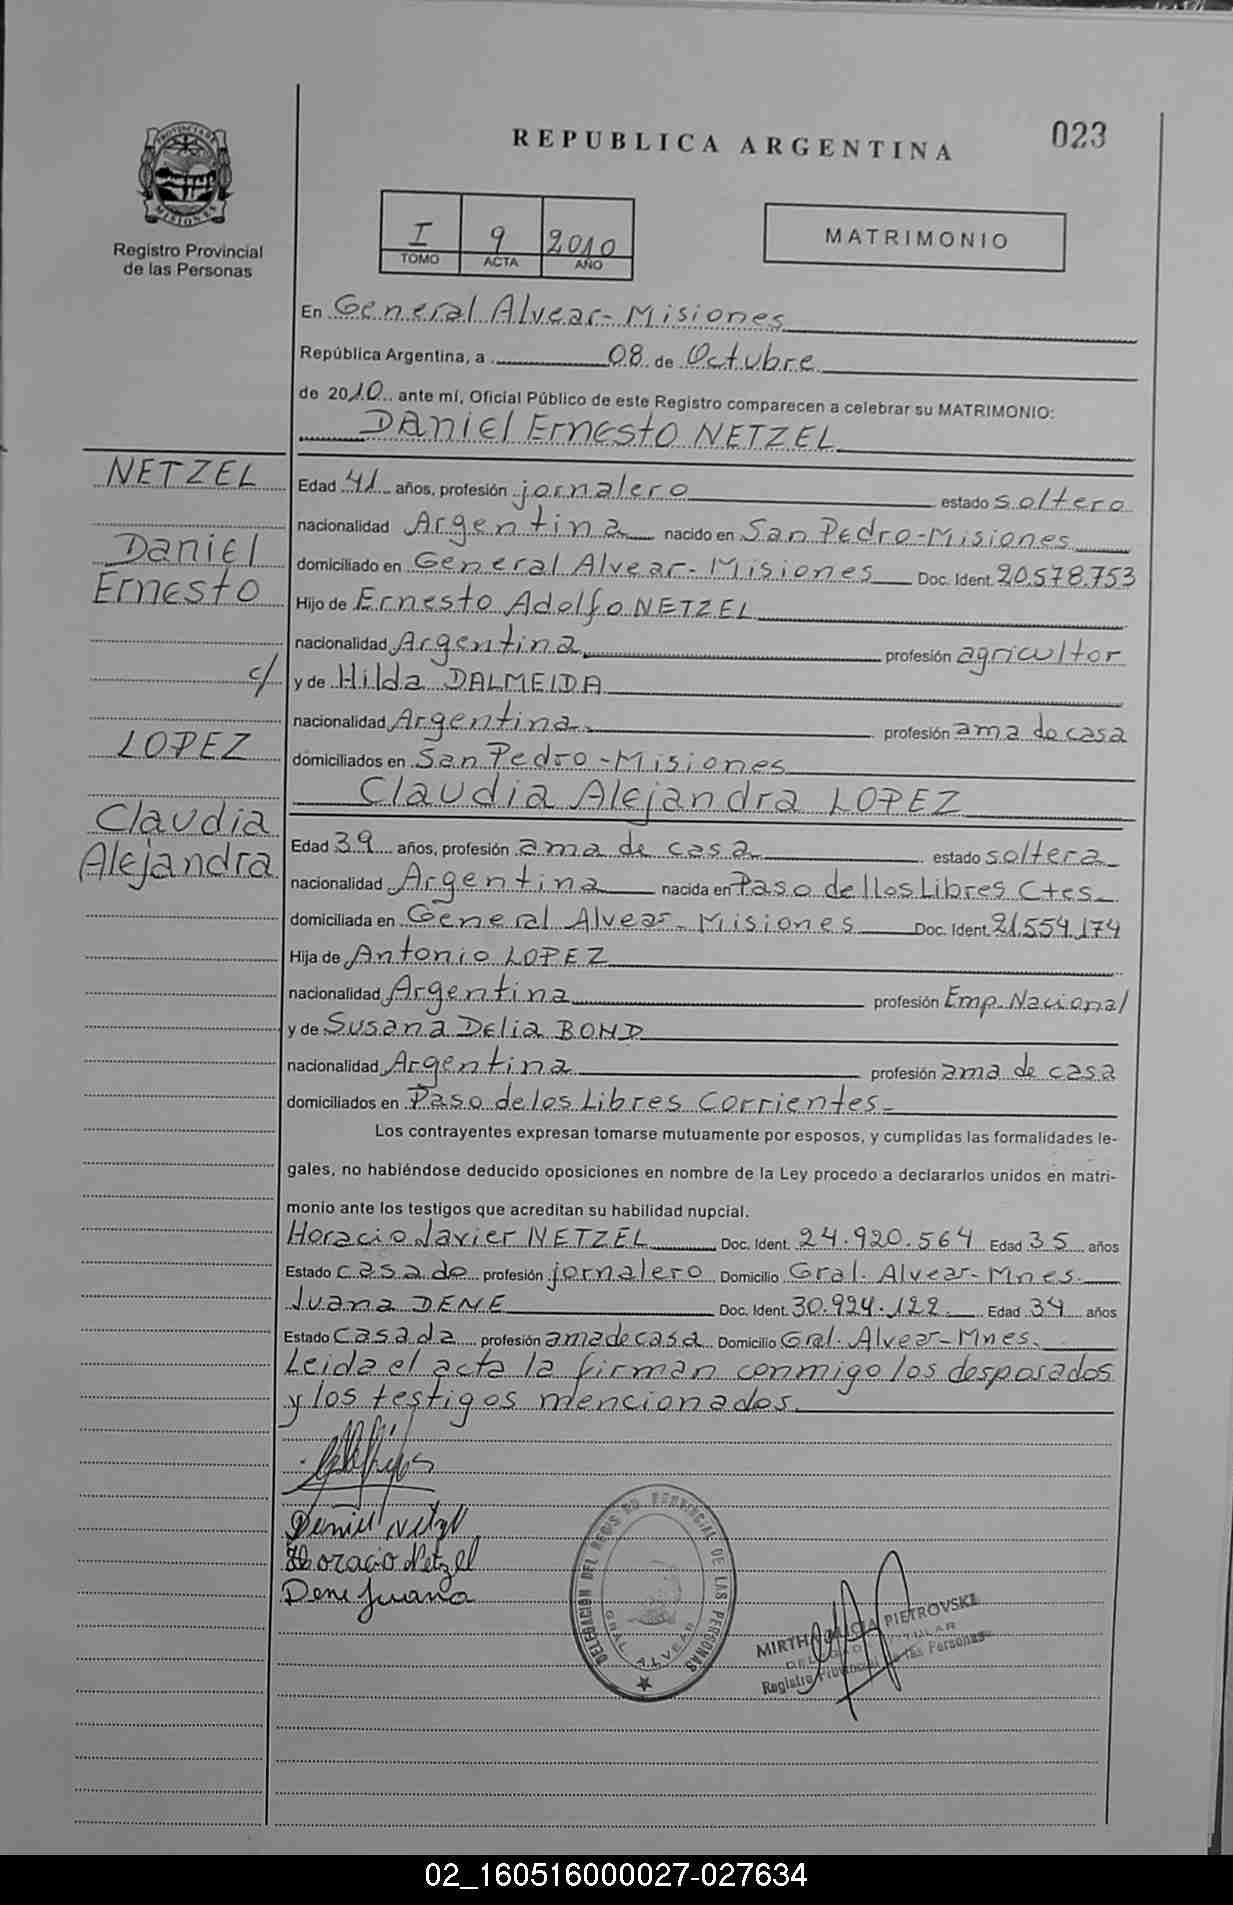 PROVINCIA DE
MISIONES
Registro Provincial
de las Personas
REPUBLICA ARGENTINA
023
I 9 2010
TOMO ACTA AÑO
MATRIMONIO
En General Alvear - Misiones
República Argentina, a 08 de Octubre
de 2010 ante mí, Oficial Público de este Registro comparecen a celebrar su MATRIMONIO:
Daniel Ernesto NETZEL
NETZEL
Daniel
Ernesto
c/
LOPEZ
Claudia
Alejandra
Edad 41 años, profesión jornalero estado soltero
nacionalidad Argentina nacido en San Pedro - Misiones
domiciliado en General Alvear - Misiones Doc. Ident. 20.578.753
Hijo de Ernesto Adolfo NETZEL
nacionalidad Argentina profesión agricultor
y de Hilda DALMEIDA
nacionalidad Argentina profesión ama de casa
domiciliados en San Pedro - Misiones
Claudia Alejandra LOPEZ
Edad 39 años, profesión ama de casa estado soltera
nacionalidad Argentina nacida en Paso de llos Libres Ctes
domiciliada en General Alvear - Misiones Doc. Ident. 21.554.174
Hija de Antonio LOPEZ
nacionalidad Argentina profesión Emp. Nacional
y de Susana Delia BOND
nacionalidad Argentina profesión ama de casa
domiciliados en Paso de los Libres Corrientes
Los contrayentes expresan tomarse mutuamente por esposos, y cumplidas las formalidades le-
gales, no habiéndose deducido oposiciones en nombre de la Ley procedo a declararlos unidos en matri-
monio ante los testigos que acreditan su habilidad nupcial.
Horacio Javier NETZEL Doc. Ident. 24.920.564 Edad 35 años
Estado casado profesión jornalero Domicilio Gral. Alvear - Mnes.
Juana DENE Doc. Ident. 30.924.122 Edad 34 años
Estado Casada profesión ama de casa Domicilio Gral. Alvear - Mnes.
Leida el acta la firman conmigo los desposados
y los testigos mencionados.
Daniel Netzel
Horacio Netzel
Dene Juana
DELEGACION DEL REGISTRO PROVINCIAL DE LAS PERSONAS
GRAL ALVEAR
MIRTHA PIETROVSKI
TITULAR
Registro Provincial de las Personas
02_160516000027-027634